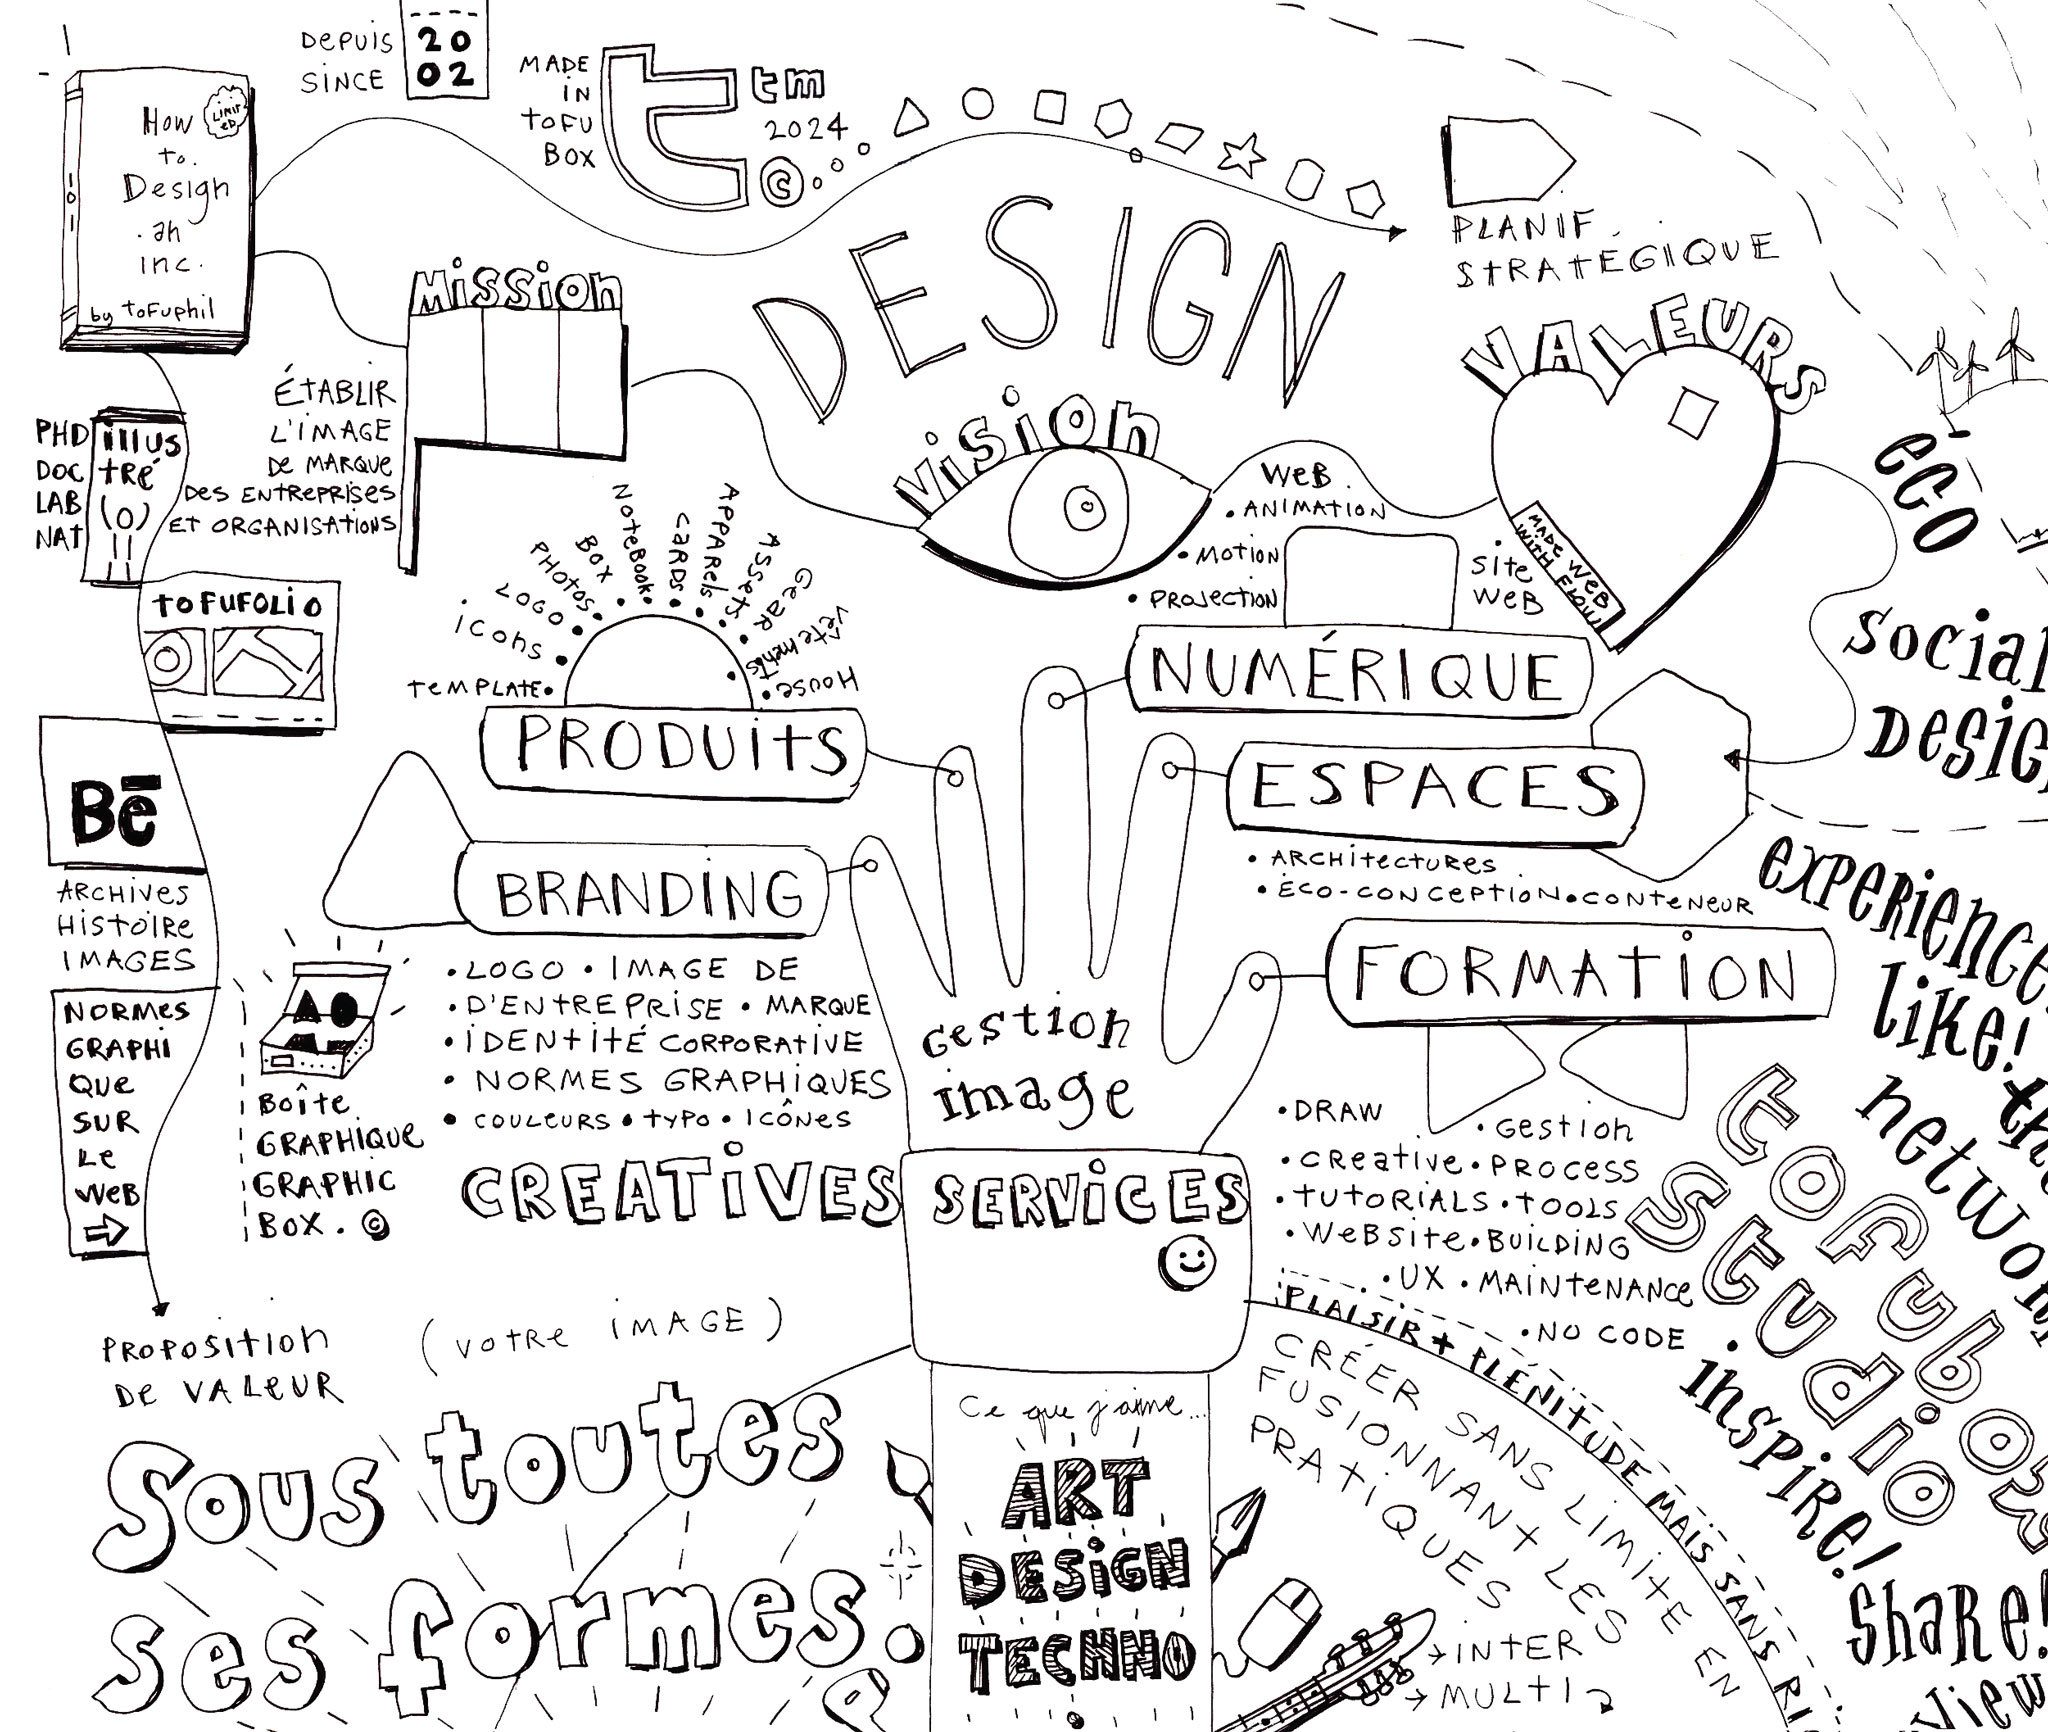 DEPUIS
SINCE
20
02
MADE
IN
toFU
BOX
tm
2024
©
How
to.
Design
.an
inc.
by toFUphil
LIMIT
ED
DESIGN
PLANIF.
STRATÉGIQUE
Mission
ÉTABLIR
L'IMAGE
DE MARQUE
DES ENTREPRISES
ET ORGANISATIONS
Vision
VALEURS
MADE WEB
WITH FLOW
PHD
DOC
LAB
NAT
illus
tré
toFUFOLIO
Bē
ARCHIVES
HISTOIRE
IMAGES
NORMES
GRAPHI
QUE
SUR
LE
WEB
BOÎTE
GRAPHIQUE
GRAPHIC
BOX. ©
PROPOSITION
DE VALEUR
TEMPLATE
icons
LOGO
PHOTOS
BOX
NOTEBOOK
CARDS
APPARELS
ASSETS
GEAR
vêtements
HOUSE
PRODUITS
WEB
• ANIMATION
• MOTION
• PROJECTION
SITE
WEB
NUMÉRIQUE
ESPACES
• ARCHITECTURES
• ÉCO-CONCEPTION • CONTENEUR
BRANDING
• LOGO • IMAGE DE
• D'ENTREPRISE • MARQUE
• IDENTITÉ CORPORATIVE
• NORMES GRAPHIQUES
• COULEURS • TYPO • ICÔNES
Gestion
image
FORMATION
• DRAW
• Gestion
• CREATIVE • PROCESS
• TUTORIALS • TOOLS
• WEBSITE • BUILDING
• UX • MAINTENANCE
• NO CODE
CREATIVES SERVICES
(VOTRE IMAGE)
Sous toutes
ses formes.
Ce que j'aime...
ART
DESIGN
TECHNO
PLAISIR + PLÉNITUDE MAIS SANS RI
CRÉER SANS LIMITE EN
FUSIONNANT LES
PRATIQUES
→ INTER
→ MULTI
éco
Social
DESIG
experience.
like!
the
network
toFubox
Studio
inspire!
share!
view